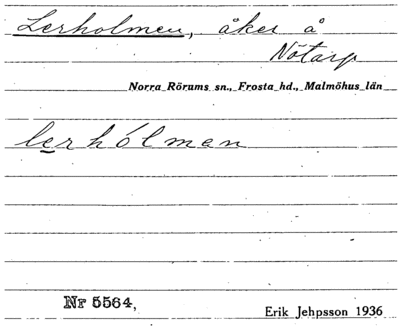 Lerholmen, åker å
Nötarp
Norra Rörums sn., Frosta hd., Malmöhus län
lerhólmen
Nr 5564,
Erik Jehpsson 1936